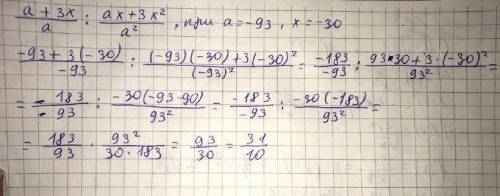 (a + 3x)/a : (ax + 3x²)/a² , при a = -93 , x = -30
(-93 + 3(-30))/(-93) : ((-93)(-30) + 3(-30)²)/(-93)² = (-183)/(-93) : (93·30 + 3·(-30)²)/93² =
= -183/93 : (-30(-93-90))/93² = (-183)/(-93) : (-30(-183))/93² =
= 183/93 · 93²/(30·183) = 93/30 = 31/10